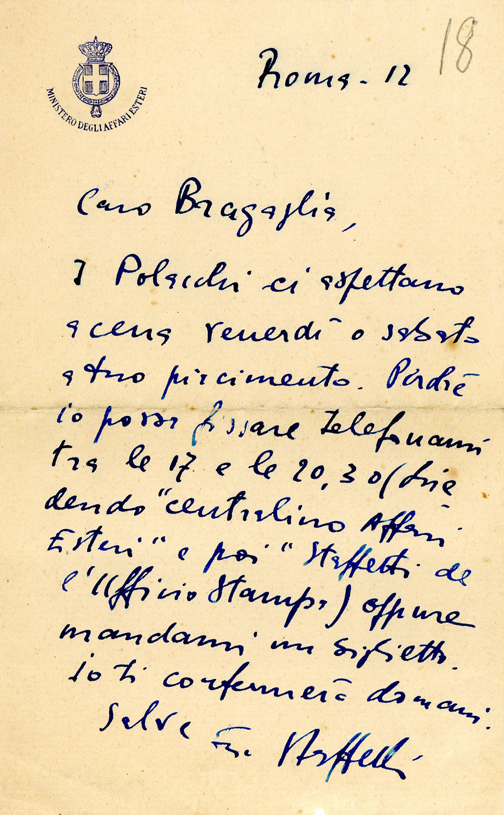 18
Roma - 12
MINISTERO DEGLI AFFARI ESTERI
Caro Bragaglia,
I Polacchi ci aspettano
a cena venerdì o sabato
a tuo piacimento. Perché
io possa fissare telefonami
tra le 17 e le 20,30 (chie
dendo "centralino Affari
Esteri" e poi "Staffetti de
l'Ufficio Stampa) oppure
mandami un biglietto.
io ti confermerò domani.
Salve
Staffetti